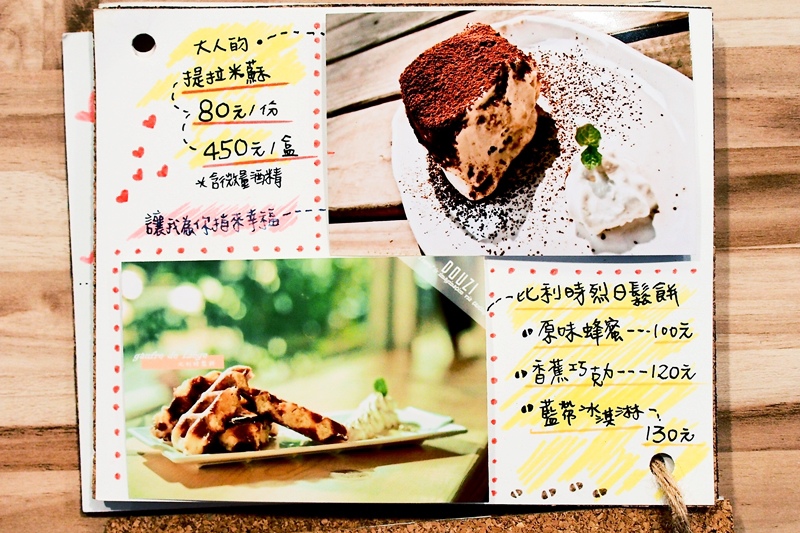 大人的
提拉米蘇
80元/份
450元/盒
*含微量酒精
讓我為你捎來幸福
DOUZI
比利時烈日鬆餅
原味蜂蜜---100元
香蕉巧克力---120元
藍帶冰淇淋
130元